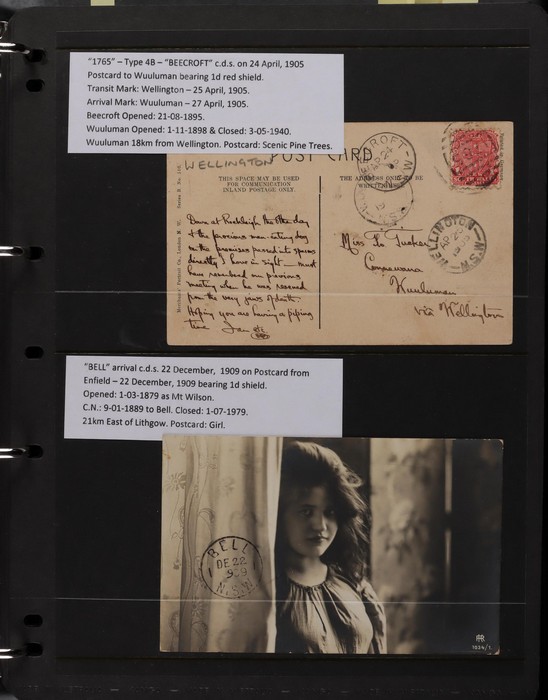 "1765" – Type 4B – "BEECROFT" c.d.s. on 24 April, 1905
Postcard to Wuuluman bearing 1d red shield.
Transit Mark: Wellington – 25 April, 1905.
Arrival Mark: Wuuluman – 27 April, 1905.
Beecroft Opened: 21-08-1895.
Wuuluman Opened: 1-11-1898 & Closed: 3-05-1940.
Wuuluman 18km from Wellington. Postcard: Scenic Pine Trees.
WELLINGTON
POST CARD
THIS SPACE MAY BE USED
FOR COMMUNICATION
INLAND POSTAGE ONLY.
THE ADDRESS ONLY TO BE
WRITTEN
Down at the other day
& the previous man-eating dog
on the premises
directly I hove in sight – must
have remembered our previous
meeting when he was rescued
from the very jaws of death.
Hoping you are having a
time
Miss Tucker
Wuuluman
via Wellington
WELLINGTON
N.S.W
"BELL" arrival c.d.s. 22 December, 1909 on Postcard from
Enfield – 22 December, 1909 bearing 1d shield.
Opened: 1-03-1879 as Mt Wilson.
C.N.: 9-01-1889 to Bell. Closed: 1-07-1979.
21km East of Lithgow. Postcard: Girl.
BELL
DE 22
N.S.W
1034/1.